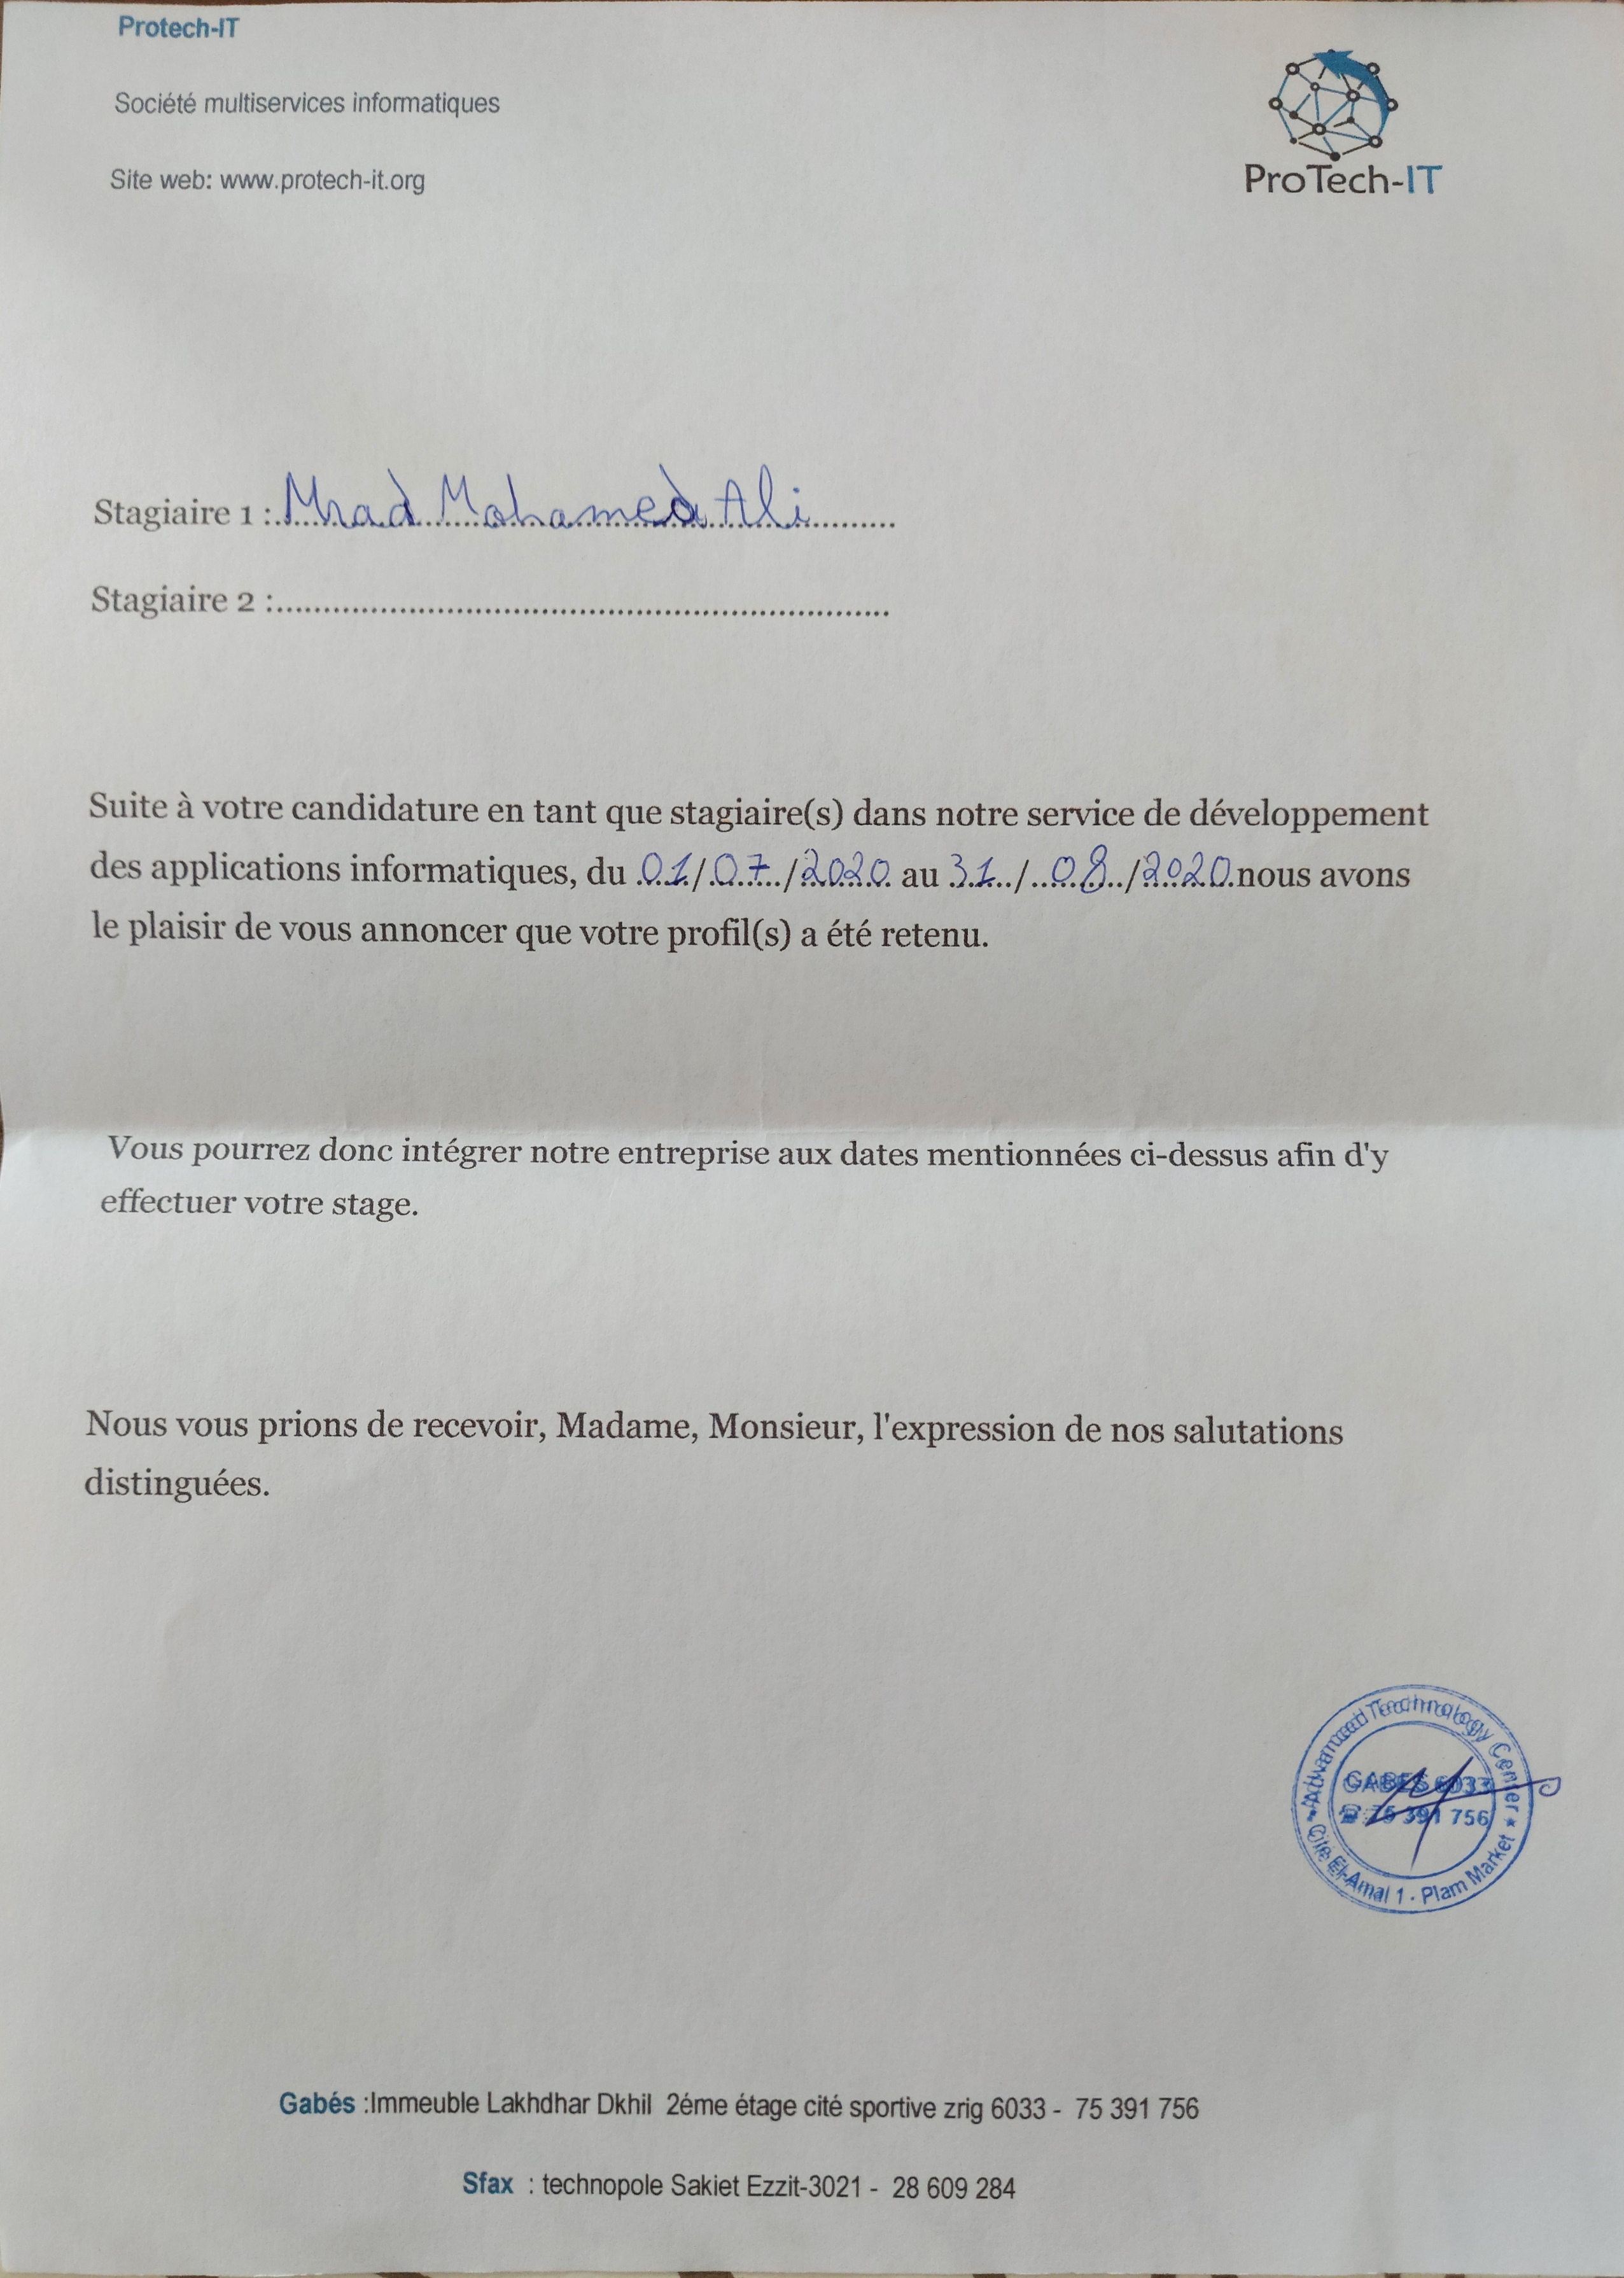 Protech-IT
Société multiservices informatiques
Site web: www.protech-it.org
ProTech-IT
Stagiaire 1 : Mrad Mohamed Ali
Stagiaire 2 :......................................................................
Suite à votre candidature en tant que stagiaire(s) dans notre service de développement
des applications informatiques, du 01/07/2020 au 31/08/2020 nous avons
le plaisir de vous annoncer que votre profil(s) a été retenu.
Vous pourrez donc intégrer notre entreprise aux dates mentionnées ci-dessus afin d'y
effectuer votre stage.
Nous vous prions de recevoir, Madame, Monsieur, l'expression de nos salutations
distinguées.
Advanced Technology Center
GABES 6033
☎ 75 391 756
Cité El-Amal 1 - Plam Market
Gabés :Immeuble Lakhdhar Dkhil 2éme étage cité sportive zrig 6033 - 75 391 756
Sfax : technopole Sakiet Ezzit-3021 - 28 609 284